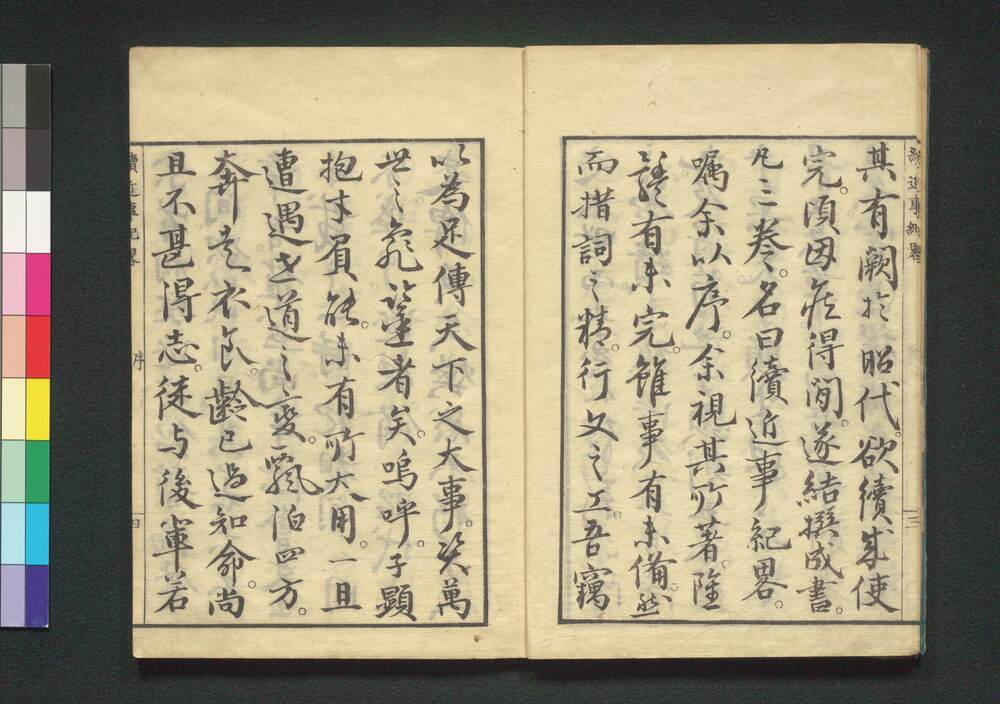 續近事紀畧
三
其有闕於昭代。欲續成使
完。頃因疾得間。遂結撰成書。
凡三卷。名曰續近事紀畧。
囑余以序。余視其所著。隆
有未完。雖事有未備。然
而措詞之精。行文之工。吾竊
以為足傳天下之大事。
世之者矣。嗚呼。子顯
抱才。能。未有所大用。一旦
遭遇世道之變。飄泊四方。
奔走衣食。齡已過知命。尚
且不甚得志。徒与後輩若
續近事紀畧
序
四